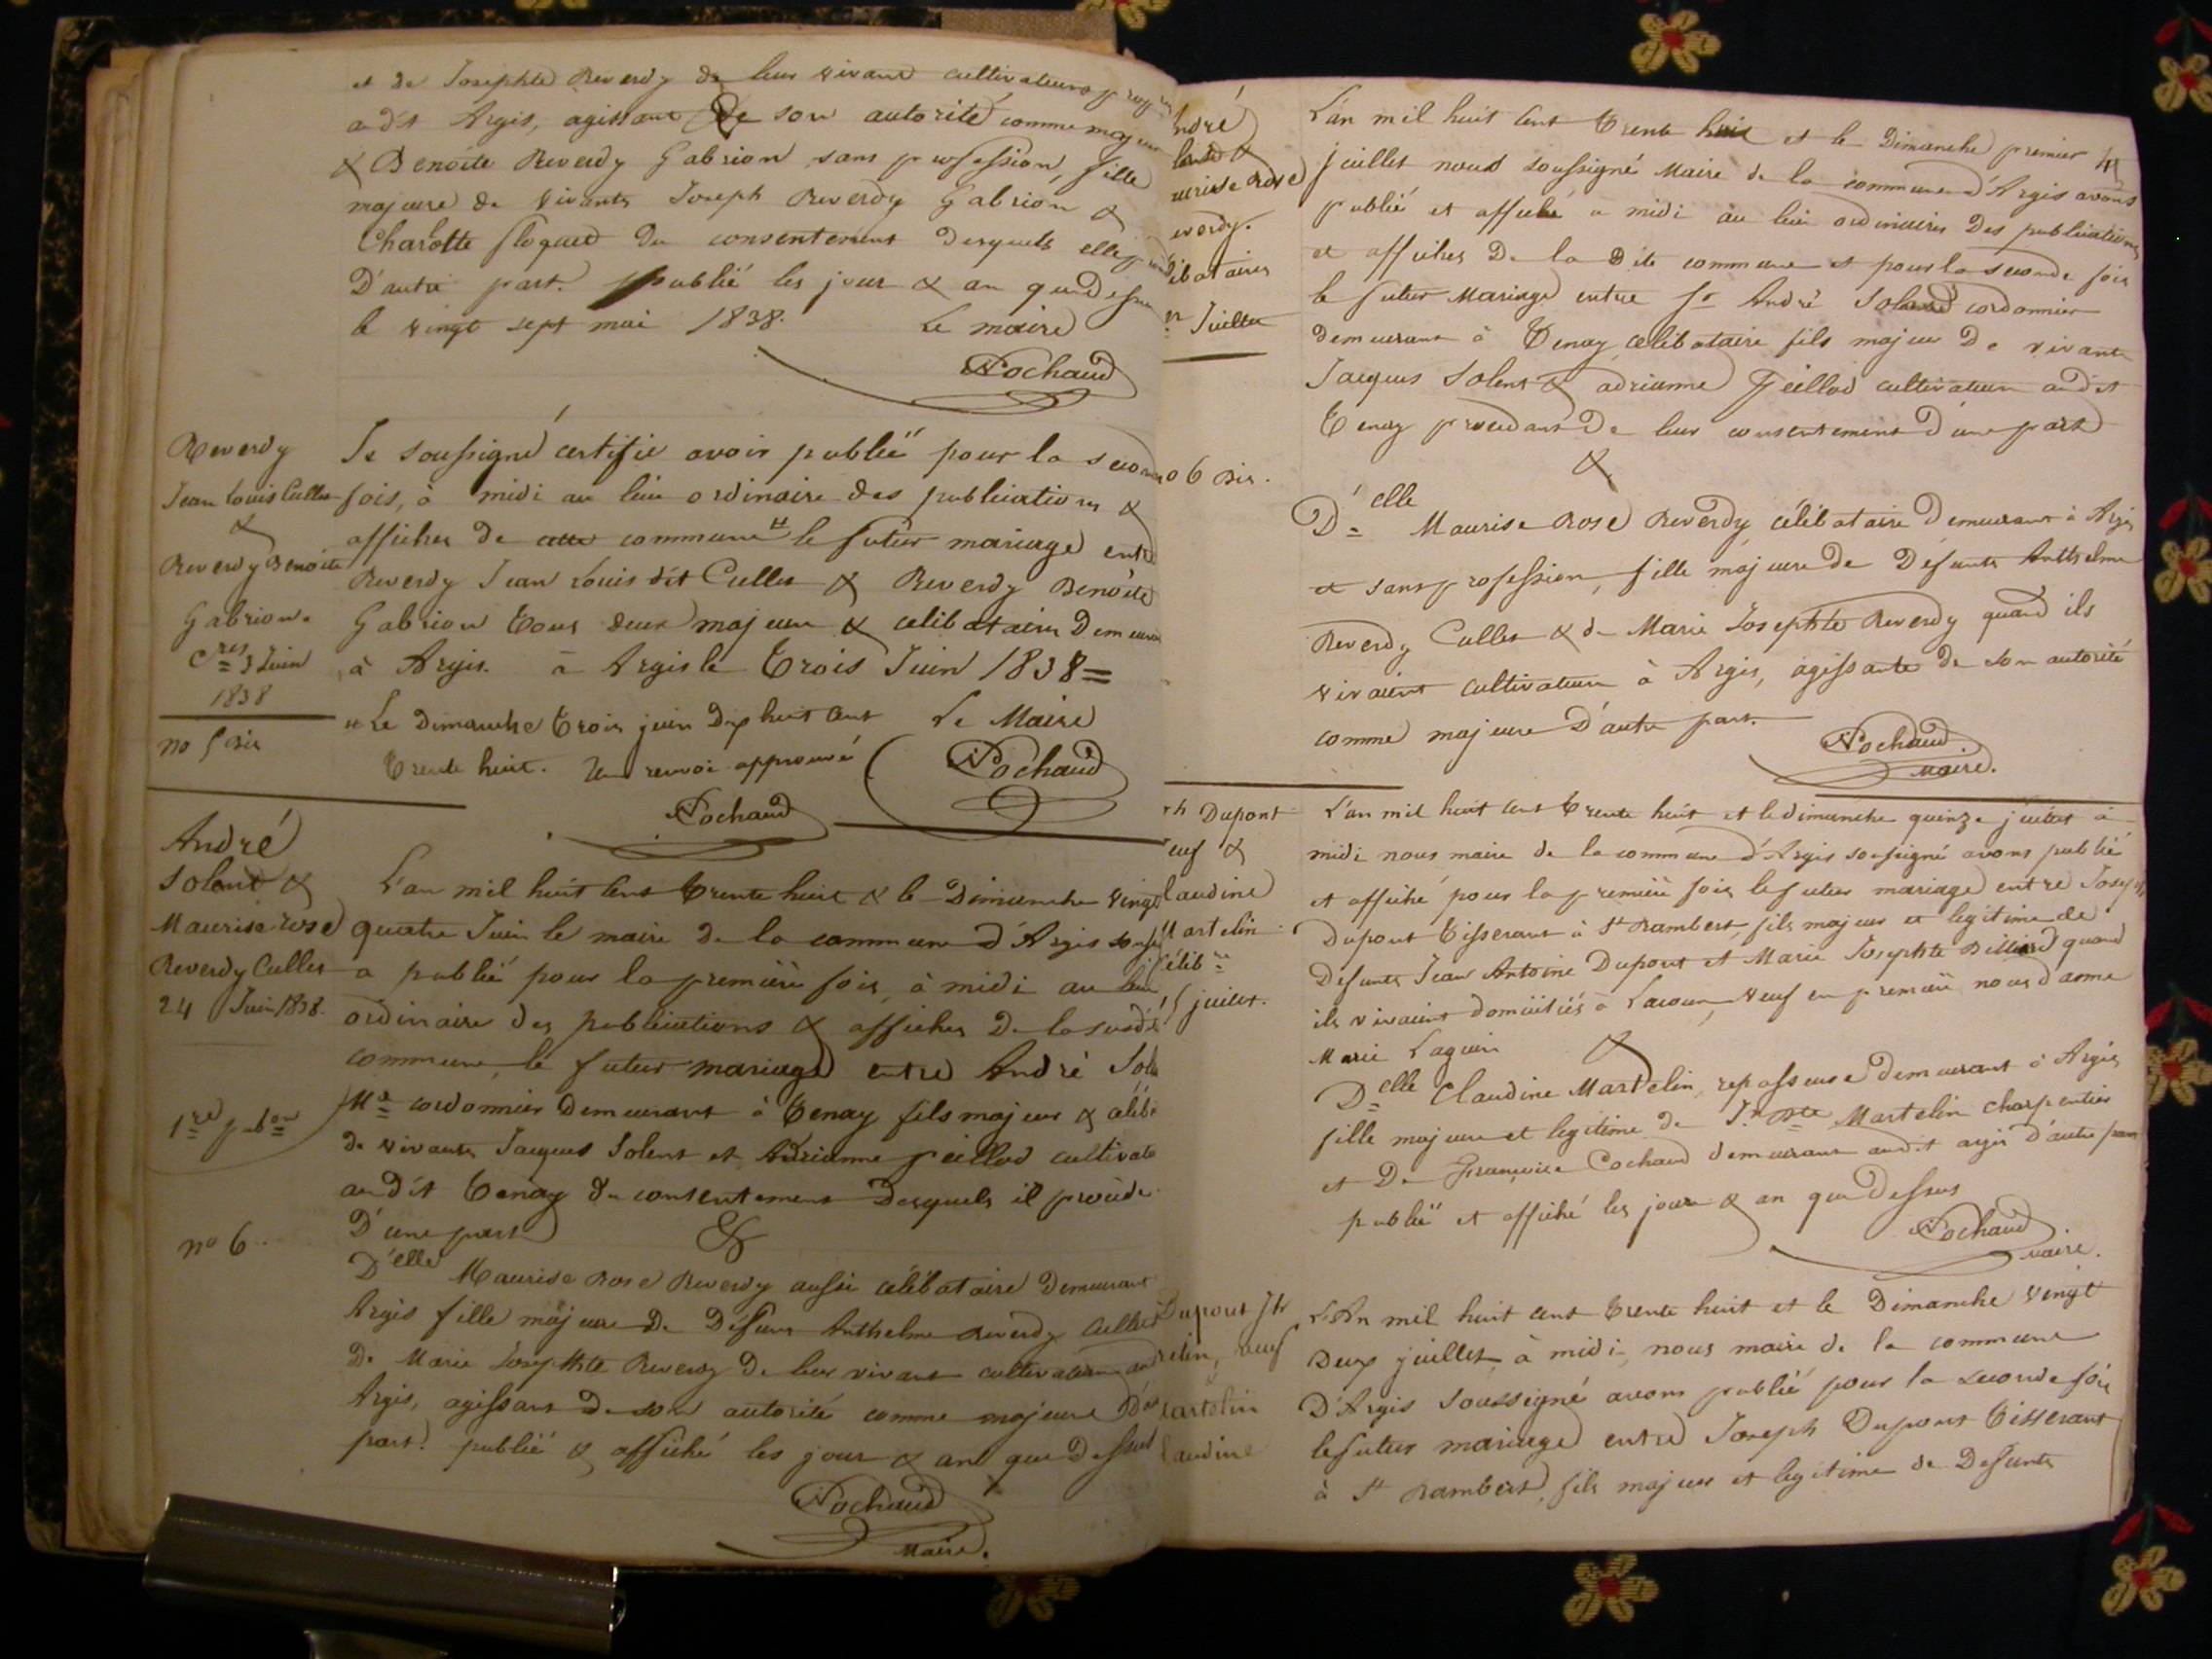 et de Josephte Reverdy de leur vivant cultivateurs
audit Argis, agissant de son autorité comme majeur
& Benoite Reverdy Gabrion sans profession, fille
majeure de vivants Joseph Reverdy Gabrion &
Charlotte du consentement desquels elle
D'autre part. publié les jour & an que dessus
le vingt sept mai 1838. Le maire
Cochaud
Reverdy
Jean Louis Cullet
&
Reverdy Benoite
Gabrion.
3 Juin
1838
no 5 Bis
Je soussigné certifie avoir publié pour la
fois, à midi au lieu ordinaire des publications &
affiches de cette commune # le futur mariage entre
Reverdy Jean Louis dit Cullet & Reverdy Benoite
Gabrion tous deux majeurs & celibataires
à Argis. à Argis le trois Juin 1838 =
# Le dimanche trois juin dix huit cent Le Maire
trente huit. Un renvoi approuvé Cochaud
Cochaud
André
Solent &
Maurise rose
Reverdy Cullet
24 Juin 1838.
1re pubon
no 6
L'an mil huit cent trente huit & le Dimanche vingt
quatre Juin le maire de la commune d'Argis
a publié pour la première fois, à midi au lieu
ordinaire des publications & affiches de la
commune, le futur mariage entre André
cordonnier demeurant à Tenay fils majeur &
de vivants Jacques Solent et Adrianne Peillod
audit Tenay du consentement desquels il procède
D'une part &
D'elle Maurise Rose Reverdy aussi célibataire demeurant
Argis fille majeure de Défunt Anthelme Reverdy Cullet
De Marie Josephte Reverdy de leur vivant cultivateurs
Argis, agissant de son autorité comme majeure
part. publié & affiché les jour & an que dessus
Cochaud
Maire.
ndré
lent &
urise Rose
everdy.
libataires
er Juillet
o 6 Bis.
L'an mil huit cent trente huit et le Dimanche premier
juillet nous soussigné Maire de la commune d'Argis avons
publié et affiché à midi au lieu ordinaire des publications
et affiches de la dite commune et pour la seconde fois
le futur Mariage entre Sr André Solent cordonnier
demeurant à Tenay célibataire fils majeur de vivants
Jacques Solent & adrianne Peillod cultivateurs audit
Tenay procédant de leur consentement d'une part
&
D'elle Maurise Rose Reverdy, célibataire demeurant à Argis
et sans profession, fille majeure de Défunts Anthelme
Reverdy Cullet & de Marie Josephte Reverdy quand ils
vivaient cultivateurs à Argis, agissante de son autorité
comme majeure D'autre part.
Cochaud
Maire.
ph Dupont
euf &
laudine
Martelin
célibre
5 juillet.
L'an mil huit cent trente huit et le dimanche quinze juillet à
midi nous maire de la commune d'Argis soussigné avons publié
et affiché pour la première fois le futur mariage entre Joseph
Dupont tisserant à St Rambert, fils majeur et legitime de
Défunts Jean Antoine Dupont et Marie Josephte Billiard quand
ils vivaient domiciliés à Lacour, veuf en première noces d'anne
Marie Laguin &
Delle Claudine Martelin, repasseuse demeurant à Argis
fille majeure et legitime de Jn Bte Martelin charpentier
et De Françoise Cochaud demeurant audit argis d'autre part
publié et affiché les jour & an que dessus
Cochaud
maire.
Dupont Jh
veuf
artelin
laudine
L'An mil huit cent trente huit et le Dimanche vingt
deux juillet à midi, nous maire de la commune
D'Argis soussigné avons publié pour la seconde fois
le futur mariage entre Joseph Dupont tisserant
à St Rambert, fils majeur et legitime de Défunts